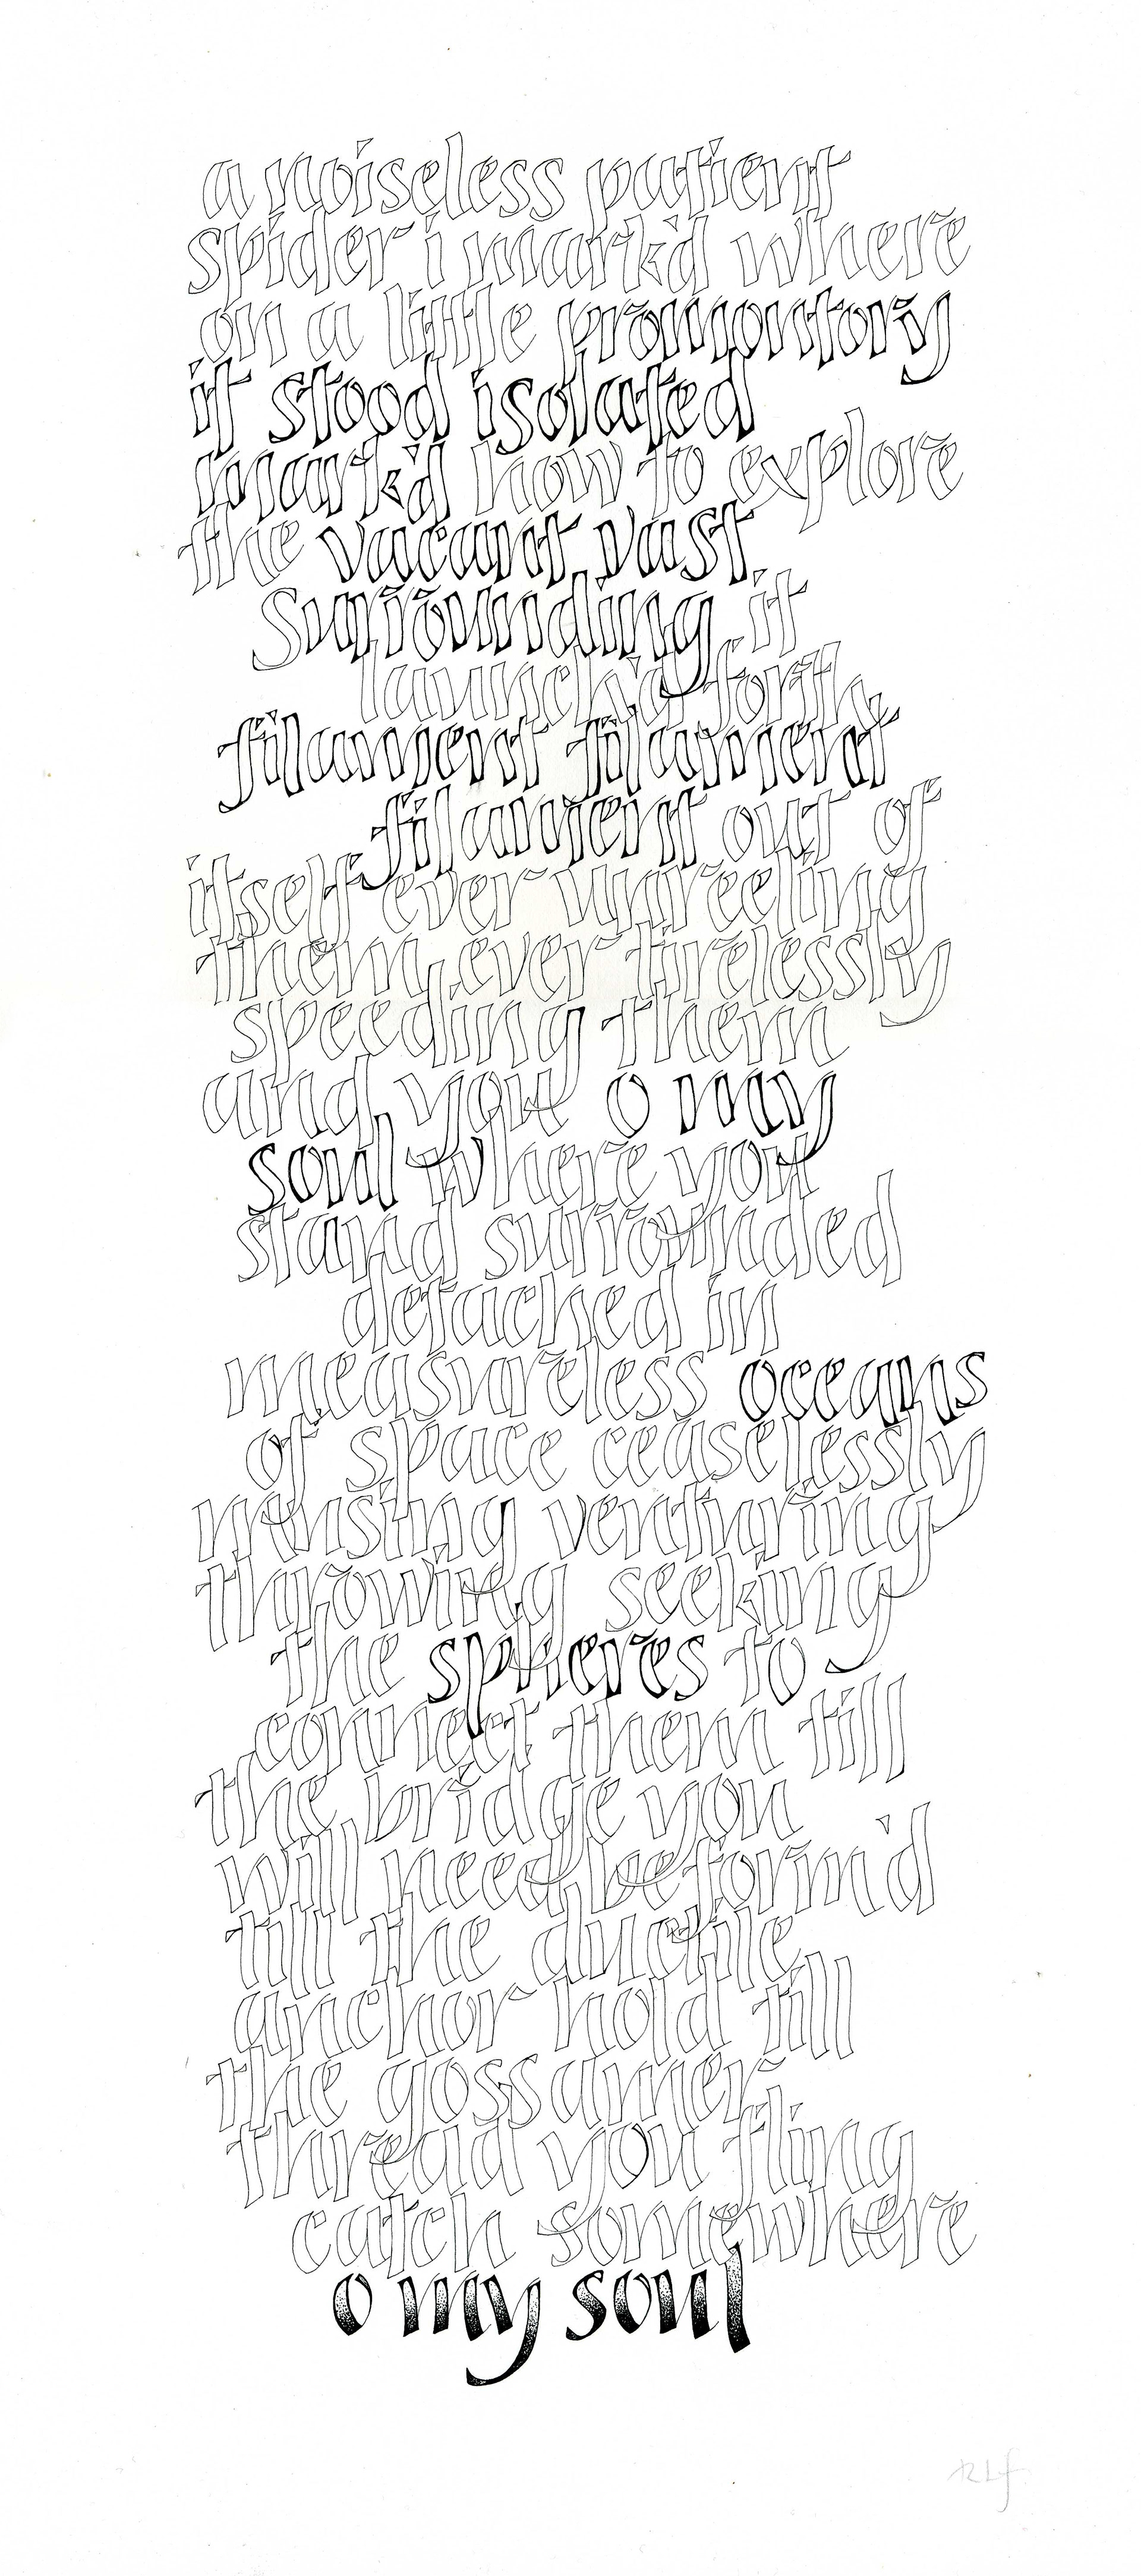 a noiseless patient
spider i mark'd where
on a little promontory
it stood isolated
mark'd how to explore
the vacant vast
surrounding, it
launch'd forth
filament filament
filament out of
itself ever unreeling
them, ever tirelessly
speeding them
and you o my
soul where you
stand surrounded
detached in
measureless oceans
of space ceaselessly
musing venturing
throwing seeking
the spheres to
connect them till
the bridge you
will need be form'd
till the ductile
anchor hold till
the gossamer
thread you fling
catch somewhere
o my soul
RLf